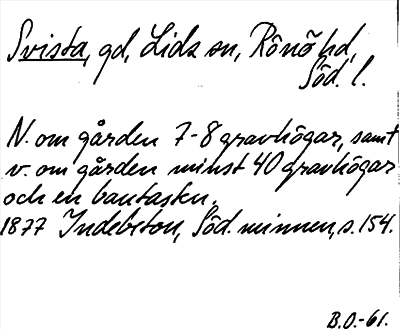 Svista, gd, Lida sn, Rönö hd,
Söd. l.
N. om gården 7-8 gravhögar, samt
v. om gården minst 40 gravhögar
och en bautasten.
1877 Indebetou, Söd. minnen, s. 154.
B.O.-61.